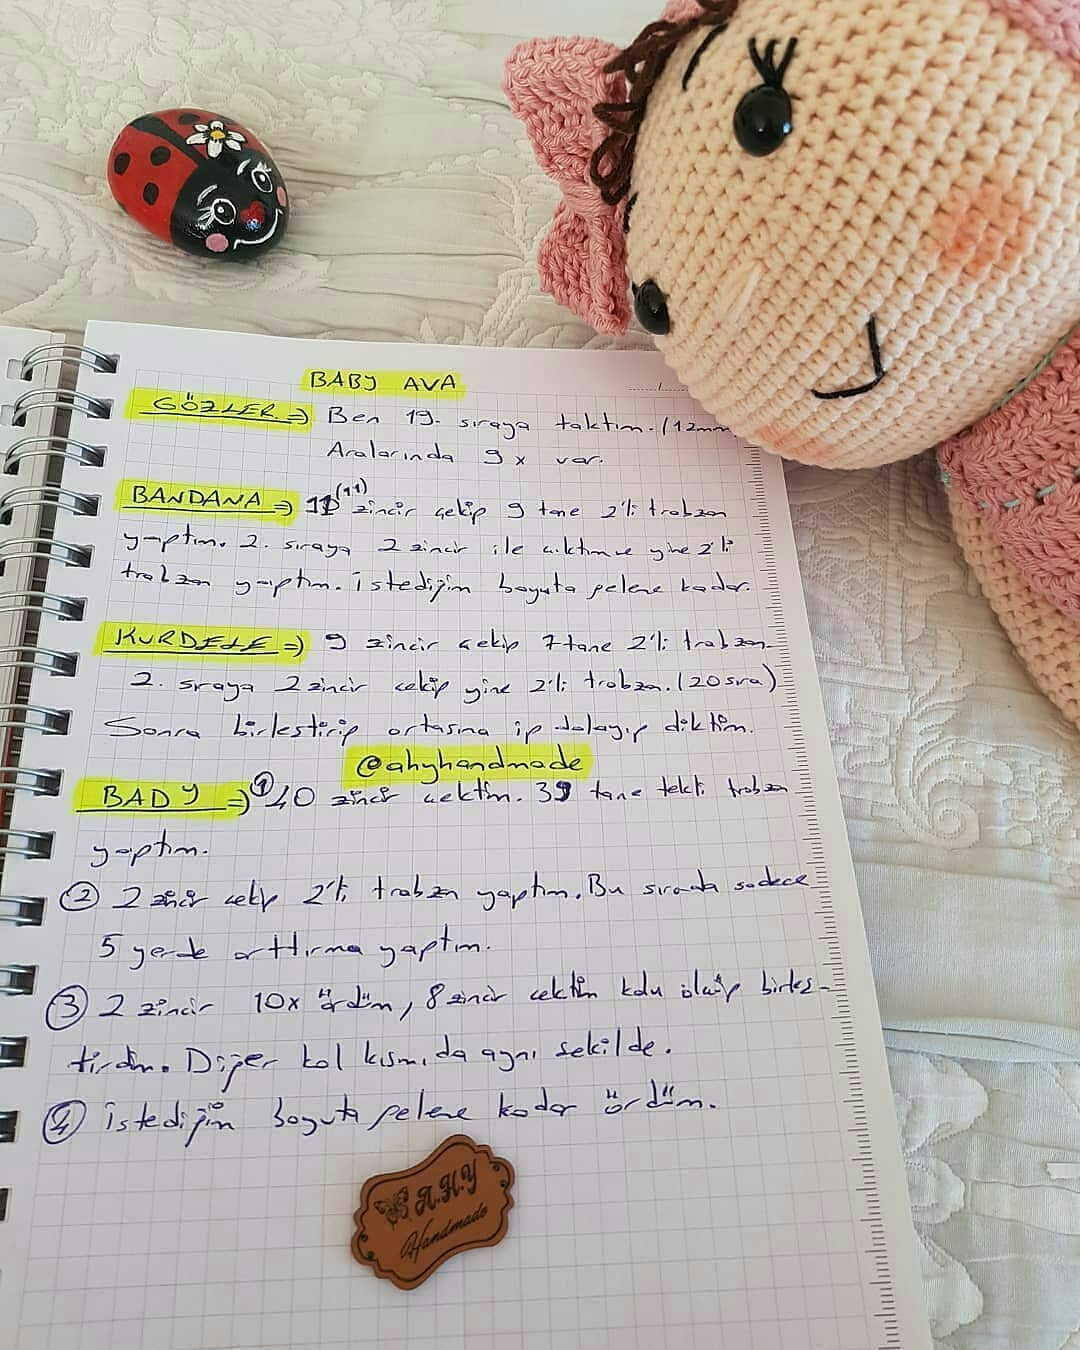 BABY AVA
GÖZLER => Ben 19. sıraya taktım. (12mm
Aralarında 9x var.
BANDANA => 11 (11) zincir çekip 9 tane 2'li trabzan
yaptım. 2. sıraya 2 zincir ile çıktım ve yine 2'li
trabzan yaptım. İstediğim boyuta gelene kadar.
KURDELE => 9 zincir çekip 7 tane 2'li trabzan.
2. sıraya 2 zincir çekip yine 2'li trabzan. (20 sıra)
Sonra birleştirip ortasına ip dolayıp diktim.
@ahyhandmade
BADY => ① 40 zincir çektim. 39 tane tekli trabzan
yaptım.
② 2 zincir çekip 2'li trabzan yaptım. Bu sırada sadece
5 yerde arttırma yaptım.
③ 2 zincir 10x ördüm, 8 zincir çektim kolu ölçüp birleş-
tirdim. Diğer kol kısmıda aynı şekilde.
④ İstediğim boyuta gelene kadar ördüm.
A.H.Y
Handmade